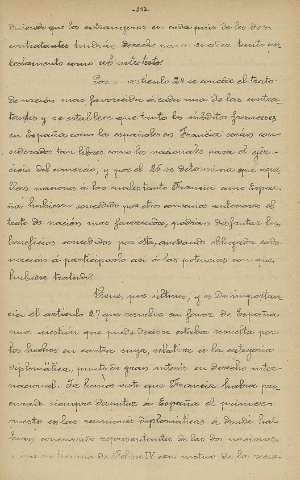 -252-
diciendo que los extrangeros en cada pais de los dos
contratantes tendrán derecho a
testamento como ab intestato.
Por el articulo 24 se concede el trato
de nación mas favorecida á cada una de las contra-
tantes y se establece que tanto los súbditos franceses
en España como los españoles en Francia serán con-
siderados tan libres como los nacionales para el ejer-
cicio del comercio, y por el 25 se determina que aque-
llas naciones á las cuales Francia como Espa-
ña hubiesen concedido por otro convenio anterior el
trato de nación mas favorecida, podrian disfrutar los
beneficios concedidos por este, quedando obligadas
á participarlo asi á las potencias con que
hubiese tratado.
Viene, por último, y es de importan-
cia el articulo 27 que resuelve en favor de España
una cuestión que puede decirse estaba resuelta por
los hechos en contra suya, relativa es la categoria
diplomática, punto de gran interés en derecho inter-
nacional. Ya hemos visto que Francia hubo pre-
tendido siempre disputar á España el primer
puesto en las reuniones diplomáticas á donde hu-
biesen concurrido representantes de las dos naciones
de Felipe IV con motivo de la